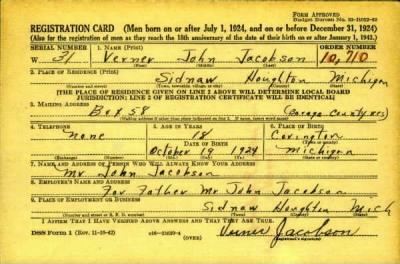 FORM APPROVED
Budget Bureau No. 33-R062-42
REGISTRATION CARD (Men born on or after July 1, 1924, and on or before December 31, 1924)
(Also for the registration of men as they reach the 18th anniversary of the date of their birth on or after January 1, 1943.)
SERIAL NUMBER 1. NAME (Print) ORDER NUMBER
W 31 Verner John Jacobson 10,710
(First) (Middle) (Last)
2. PLACE OF RESIDENCE (Print)
Sidnaw Houghton Michigan
(Number and street) (Town, township, village or city) (County) (State)
[THE PLACE OF RESIDENCE GIVEN ON LINE 2 ABOVE WILL DETERMINE LOCAL BOARD
JURISDICTION; LINE 2 OF REGISTRATION CERTIFICATE WILL BE IDENTICAL]
3. MAILING ADDRESS
Box 58 (Baraga County res)
[Mailing address if other than place indicated on line 2. If same, insert word same]
4. TELEPHONE 5. AGE IN YEARS 6. PLACE OF BIRTH
None 18 Covington
DATE OF BIRTH (Town or county)
October 19 1924 Michigan
(Exchange) (Number) (Mo.) (Day) (Yr.) (State or country)
7. NAME AND ADDRESS OF PERSON WHO WILL ALWAYS KNOW YOUR ADDRESS
Mr John Jacobson
8. EMPLOYER'S NAME AND ADDRESS
For Father Mr John Jacobson
9. PLACE OF EMPLOYMENT OR BUSINESS
Sidnaw Houghton Mich
(Number and street or R. F. D. number) (Town) (County) (State)
I AFFIRM THAT I HAVE VERIFIED ABOVE ANSWERS AND THAT THEY ARE TRUE.
DSS Form 1 (Rev. 11-16-42) (OVER) Verner Jacobson